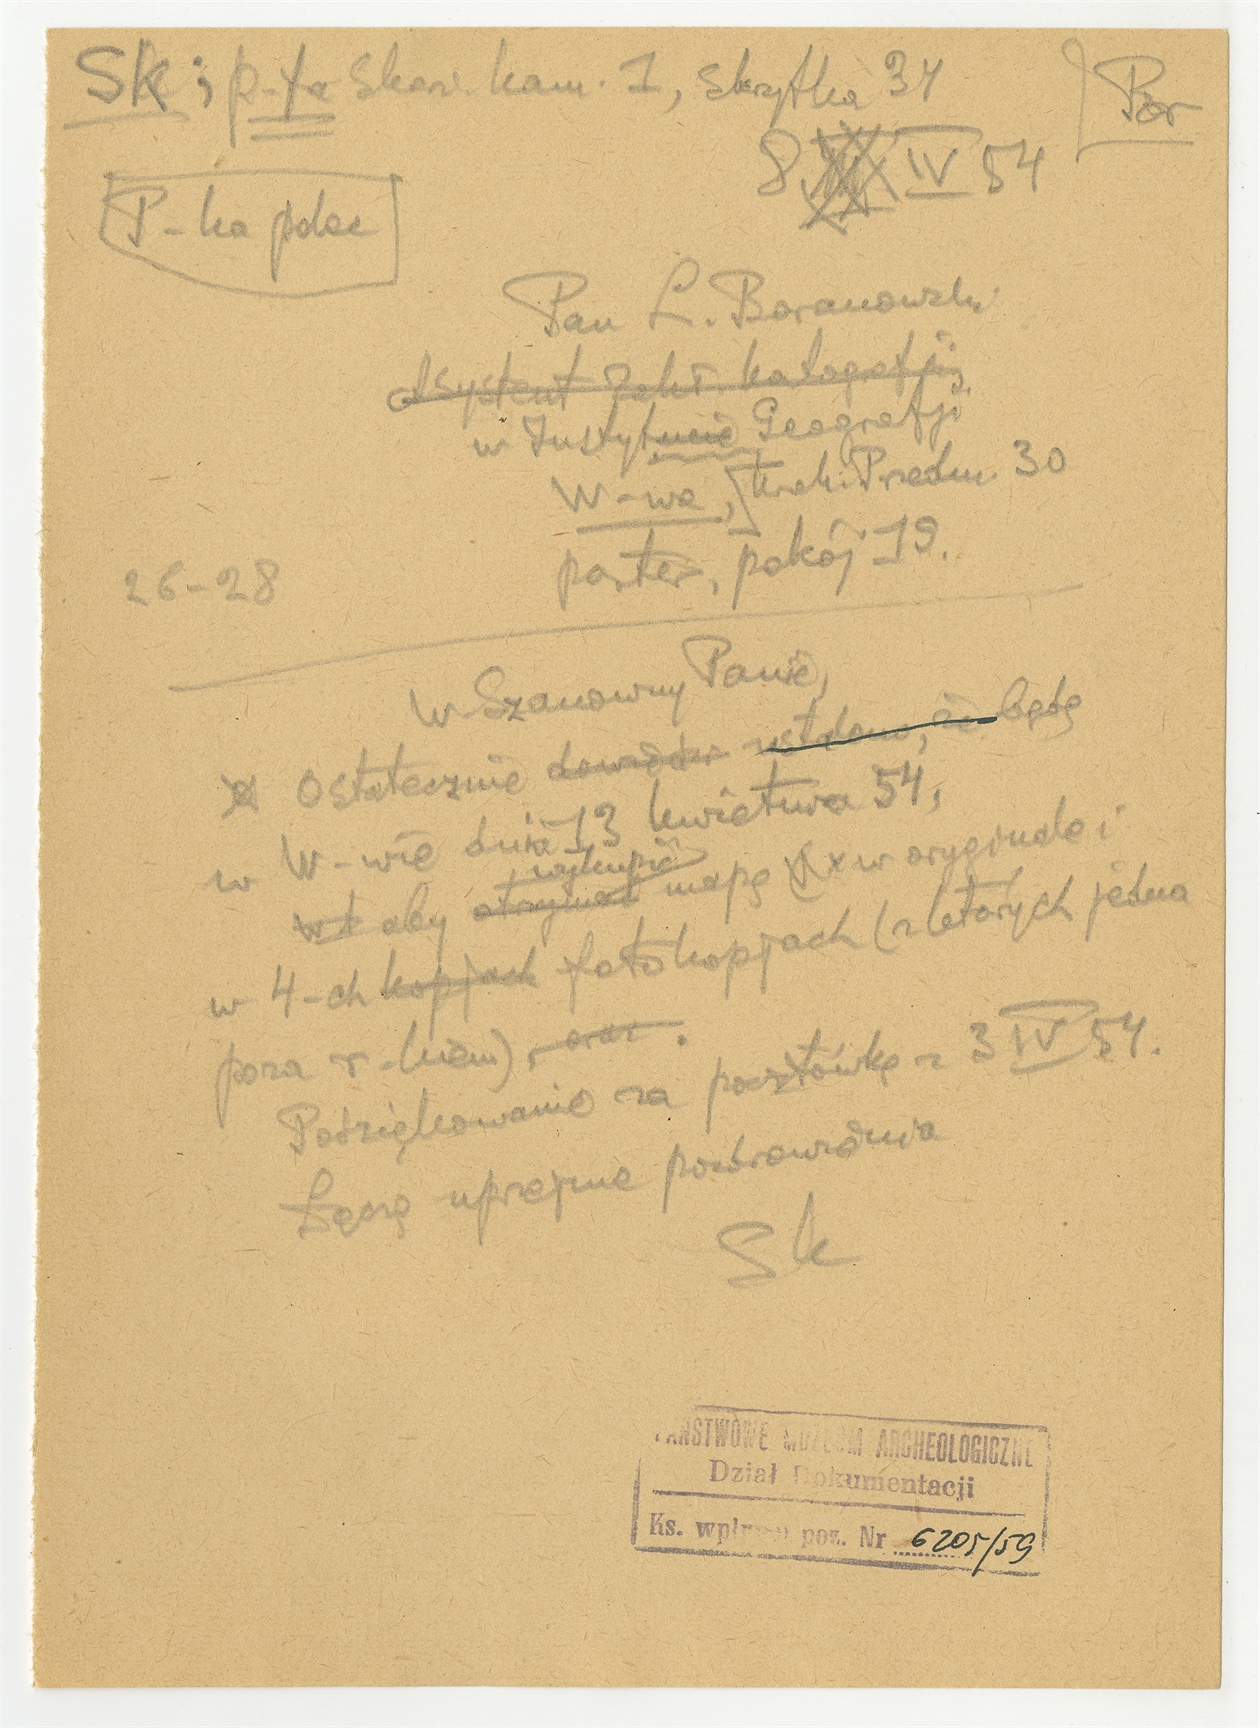 Sk; p-ta Skar. kam. 1, skrytka 34
Bor
8 IV 54
P-ka polec
Pan L. Boranowski
Asystent Zakł. katografji
w Instytucie Geografji
W-wa, Krak. Przedm. 30
parter, pokój 19.
26-28
W Szanowny Panie,
Ostatecznie będę
w W-wie dnia 13 kwietnia 54,
wykupić
wt aby otrzymać mapę w oryginale i
w 4-ch kopjach fotokopjach (z których jedna
poza r-kiem), oraz.
Podziękowanie za pocztówkę z 3 IV 54.
Łączę uprzejme pozdrowienia
Sk
PAŃSTWOWE MUZEUM ARCHEOLOGICZNE
Dział Dokumentacji
Ks. wpływu poz. Nr 6205/59